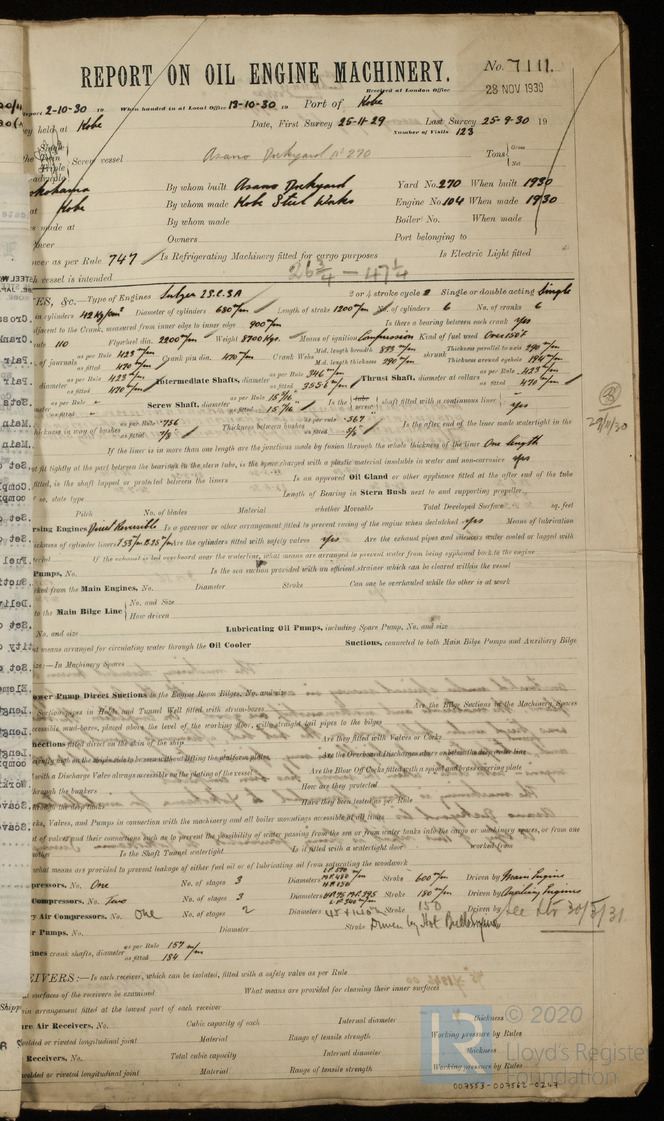 REPORT ON OIL ENGINE MACHINERY. No. 7111.
Received at London Office
28 NOV 1930
Report 2-10-30 19 When handed in at Local Office 13-10-30 19 Port of Kobe
held at Kobe Date, First Survey 25-11-29 Last Survey 25-9-30 19
Number of Visits 123
Single
Twin
Triple
Quadruple
Screw vessel Asano Dockyard No 270 Tons Gross Net
Yokohama By whom built Asano Dockyard Yard No. 270 When built 1930
at Kobe By whom made Kobe Steel Works Engine No. 104 When made 1930
made at By whom made Boiler No. When made
Owners Port belonging to
as per Rule 747 Is Refrigerating Machinery fitted for cargo purposes Is Electric Light fitted
vessel is intended 26 3/4 — 47 1/4
ES, &c.—Type of Engines Sulzer 2 S.C.S.A 2 or 4 stroke cycle 2 Single or double acting Single
in cylinders 42 Kg/cm2 Diameter of cylinders 680 m/m Length of stroke 1200 m/m No. of cylinders 6 No. of cranks 6
adjacent to the Crank, measured from inner edge to inner edge 900 m/m Is there a bearing between each crank yes
110 Flywheel dia. 2200 m/m Weight 8700 Kgs. Means of ignition Compression Kind of fuel used Over 150°F
of journals as per Rule 423 m/m as fitted 470 m/m Crank pin dia. 470 m/m Crank Webs Mid. length breadth 885 m/m Mid. length thickness 290 m/m shrunk Thickness parallel to axis 290 m/m Thickness around eyehole 194 m/m
diameter as per Rule 423 m/m as fitted 470 m/m Intermediate Shafts, diameter as per Rule 346 m/m as fitted 355.6 m/m Thrust Shaft, diameter at collars as per Rule 423 m/m as fitted 470 m/m
Screw Shaft, diameter as per Rule 15 7/16 as fitted 15 7/16 Is the tube screw shaft fitted with a continuous liner yes
thickness in way of bushes as per Rule .756 as fitted 7/8" Thickness between bushes as per Rule .567 as fitted Is the after end of the liner made watertight in the
If the liner is in more than one length are the junctions made by fusion through the whole thickness of the liner One length
not fit tightly at the part between the bearings in the stern tube, is the space charged with a plastic material insoluble in water and non-corrosive yes
fitted, is the shaft lapped or protected between the liners Is an approved Oil Gland or other appliance fitted at the after end of the tube
so, state type Length of Bearing in Stern Bush next to and supporting propeller
Pitch No. of blades Material whether Moveable Total Developed Surface sq. feet
rsing Engines Direct Reversible Is a governor or other arrangement fitted to prevent racing of the engine when declutched yes Means of lubrication
ickness of cylinder liners Are the cylinders fitted with safety valves yes Are the exhaust pipes and silencers water cooled or lagged with
If the exhaust is led overboard near the waterline, what means are arranged to prevent water from being syphoned back to the engine
Pumps, No. Is the sea suction provided with an efficient strainer which can be cleared within the vessel
rked from the Main Engines, No. Diameter Stroke Can one be overhauled while the other is at work
to the Main Bilge Line No. and Size
How driven
No. and size Lubricating Oil Pumps, including Spare Pump, No. and size
t means are arranged for circulating water through the Oil Cooler Suctions, connected to both Main Bilge Pumps and Auxiliary Bilge
ize:—In Machinery Spaces
ower Pump Direct Suctions to the Engine Room Bilges, No. and size
Suction pipes in Holds and Tunnel Well fitted with strum-boxes Are the Bilge Suctions in the Machinery Spaces
accessible mud-boxes, placed above the level of the working floor, with straight tail pipes to the bilges
nnections fitted direct on the skin of the ship Are they fitted with Valves or Cocks
Are the Overboard Discharges above or below the deep water line
with a Discharge Valve always accessible on the plating of the vessel Are the Blow Off Cocks fitted with a spigot and brass covering plate
through the bunkers How are they protected
Have they been tested as per Rule
cks, Valves, and Pumps in connection with the machinery and all boiler mountings accessible at all times
t of valves and their connections such as to prevent the possibility of water passing from the sea or from water tanks into the cargo or machinery spaces, or from one
other Is the Shaft Tunnel watertight Is it fitted with a watertight door worked from
what means are provided to prevent leakage of either fuel oil or of lubricating oil from saturating the woodwork
pressors, No. One No. of stages 3 Diameters Stroke 600 m/m Driven by Main Engine
Compressors, No. Two No. of stages 3 Diameters Stroke 180 m/m Driven by Auxiliary Engines
ry Air Compressors, No. One No. of stages 2 Diameters Stroke 150 Driven by
Driven by Hot Bulb Engine
See 30/3/31
r Pumps, No. Diameter Stroke
ines crank shafts, diameter as per Rule 157 m/m as fitted 184
EIVERS:—Is each receiver, which can be isolated, fitted with a safety valve as per Rule
l surfaces of the receivers be examined What means are provided for cleaning their inner surfaces
in arrangement fitted at the lowest part of each receiver
re Air Receivers, No. Cubic capacity of each Internal diameter thickness
welded or riveted longitudinal joint Material Range of tensile strength Working pressure by Rules
Receivers, No. Total cubic capacity Internal diameter thickness
welded or riveted longitudinal joint Material Range of tensile strength Working pressure by Rules
29/11/30
LR © 2020
Lloyd's Registe
Foundation
007553-007562-0247